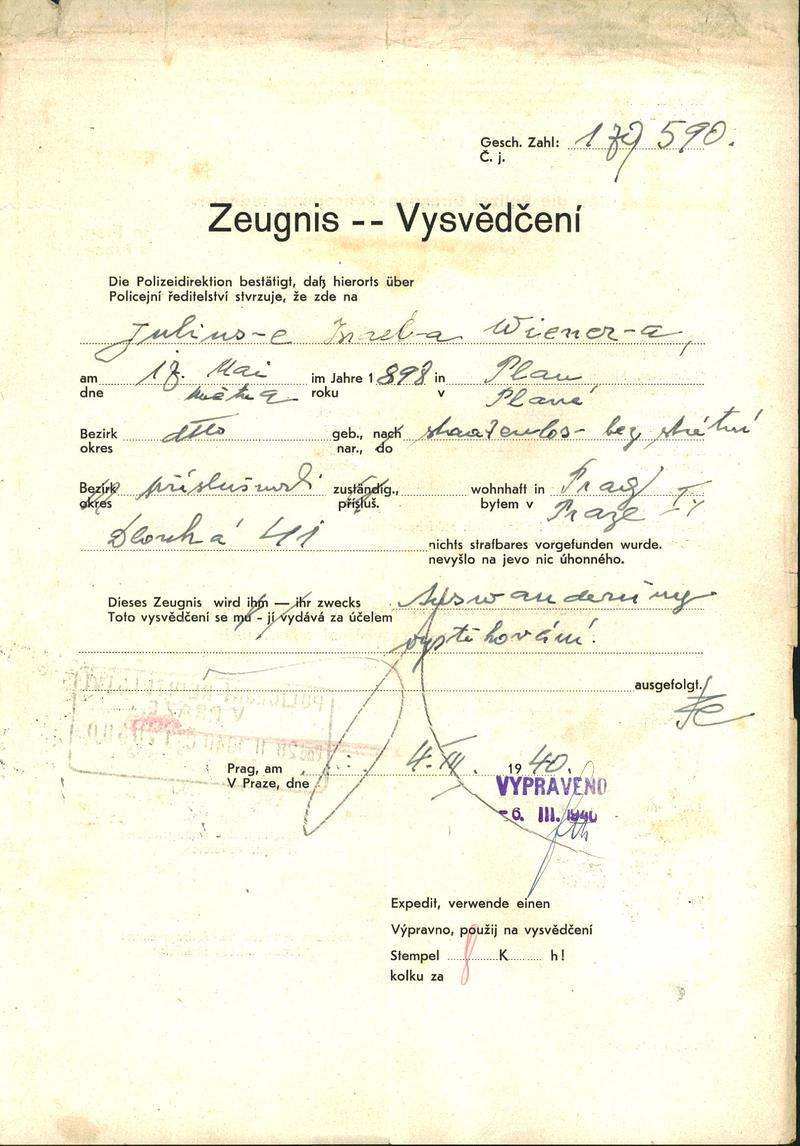 Gesch. Zahl: 179 590.
Č. j.
Zeugnis -- Vysvědčení
Die Polizeidirektion bestätigt, daß hierorts über
Policejní ředitelství stvrzuje, že zde na
Julius-e Israel-a Wiener-a,
am 17. Mai im Jahre 1898 in Plan
dne května roku v Plané
Bezirk dtto geb., nach staatenlos- bez státní
okres nar., do
Bezirk příslušnosti zuständig., wohnhaft in Prag
okres přísluš. bytem v Praze
Dlouhá 41 nichts strafbares vorgefunden wurde.
nevyšlo na jevo nic úhonného.
Dieses Zeugnis wird ihm — ihr zwecks Auswanderung
Toto vysvědčení se mu - jí vydává za účelem
vystěhování.
ausgefolgt.
POLICEJNÍ ŘEDITELSTVÍ
V PRAZE
Prag, am 4. III. 1940.
V Praze, dne
VYPRAVENO
- 6. III. 1940
Expedit, verwende einen
Výpravno, použij na vysvědčení
Stempel 8 K h!
kolku za